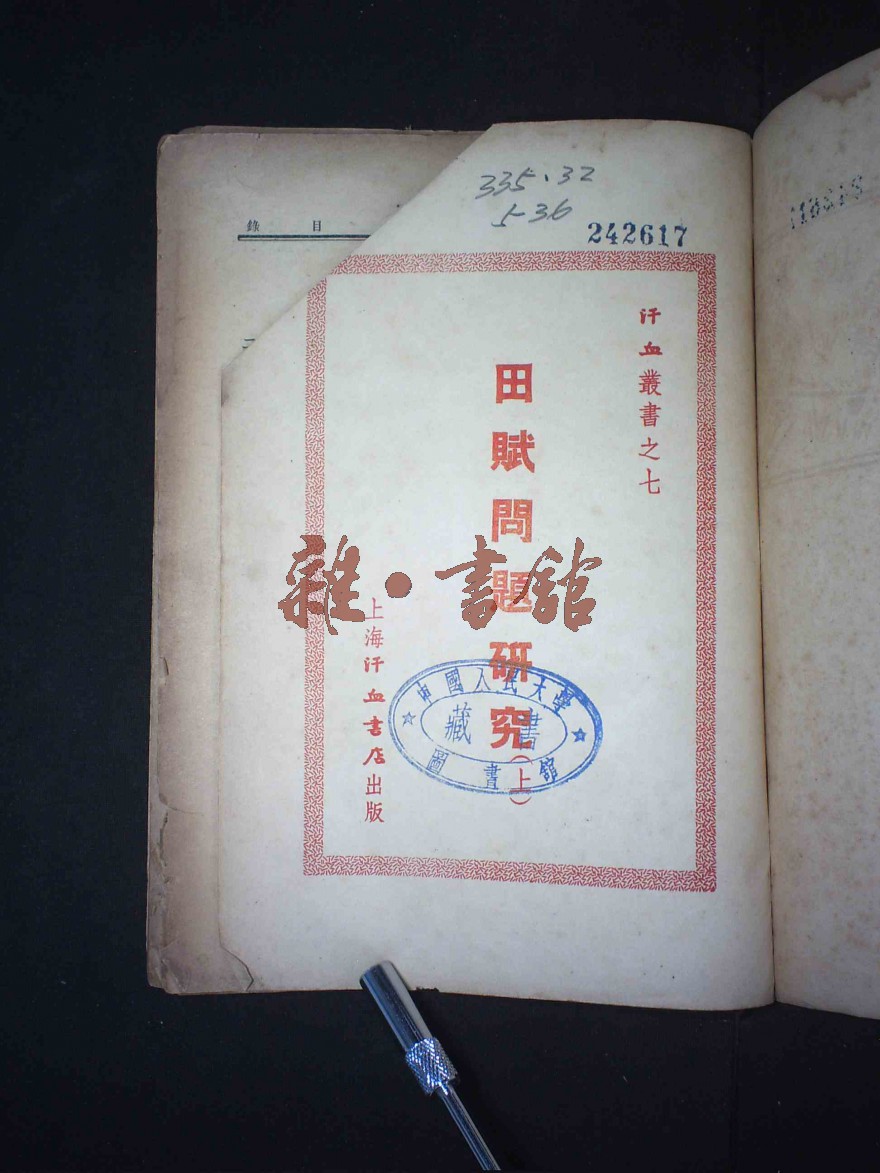 335.32
5-36
242617
錄 目
汗血叢書之七
田賦問題研究(上)
上海汗血書店出版
雜·書館
中國人民大學
藏書
圖書館